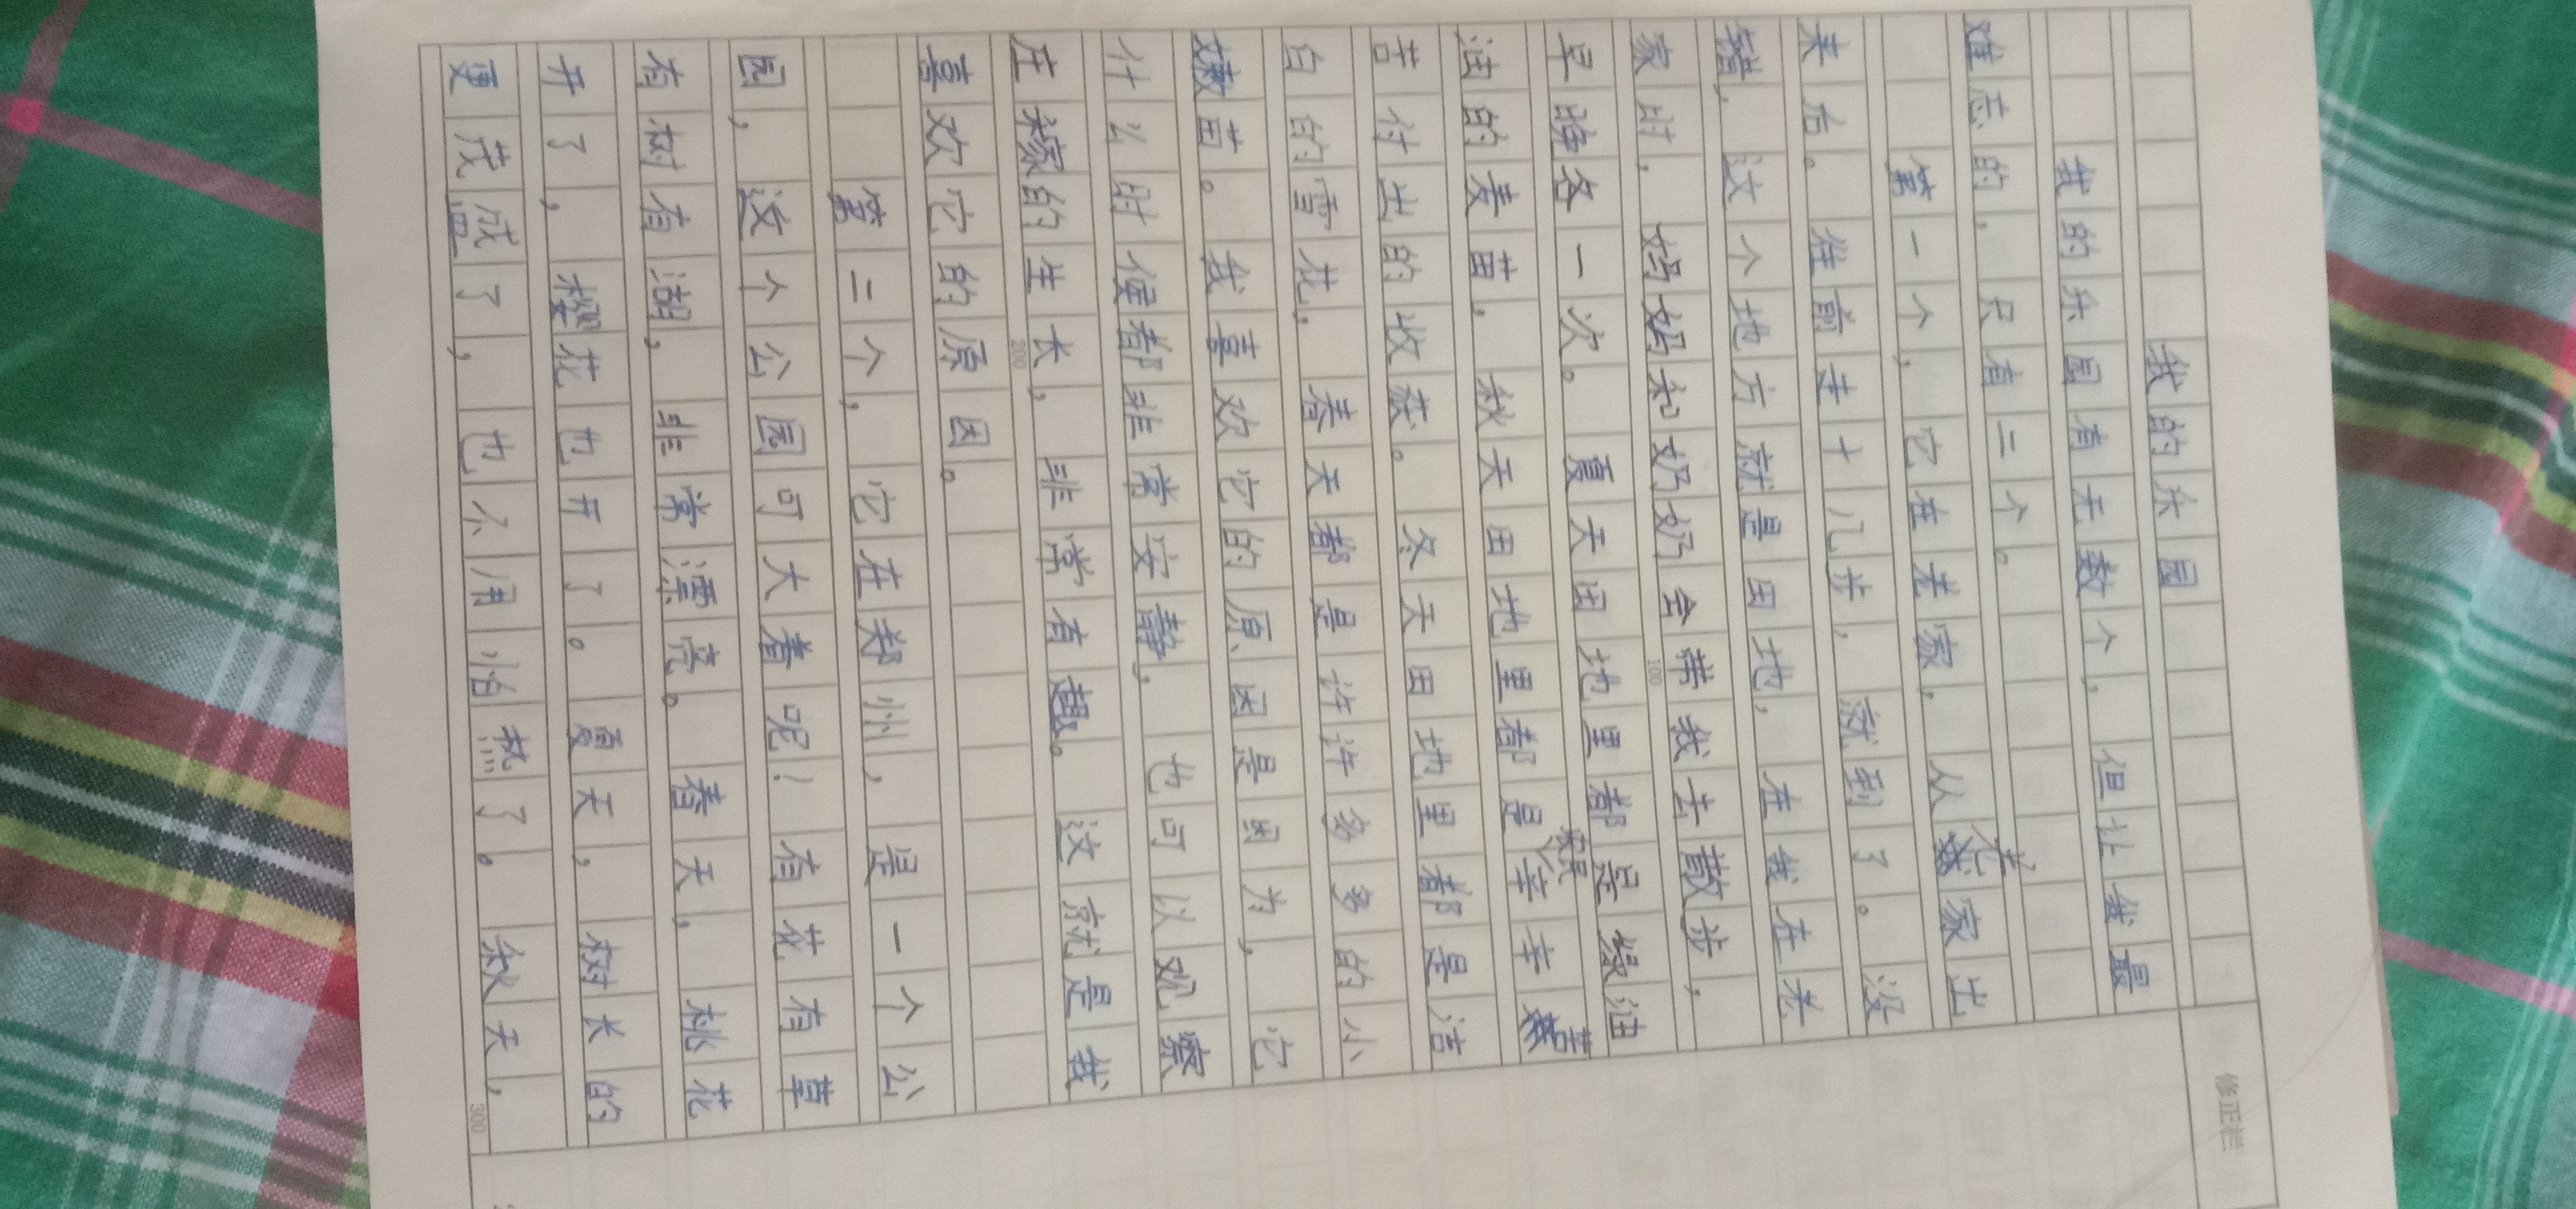 我的乐园
我的乐园有无数个，但让我最
难忘的，只有二个。
第一个，它在老家，从老家出
来后。往前走十几步，就到了。没
错，这个地方就是田地，在我在老
家时，妈妈和奶奶会带我去散步，
早晚各一次。夏天田地里都是绿油
油的麦苗，秋天田地里都是农民辛辛苦
苦付出的收获。冬天田地里都是洁
白的雪花，春天都是许许多多的小
嫩苗。我喜欢它的原因是因为，它
什么时候都非常安静，也可以观察
庄稼的生长，非常有趣。这就是我
喜欢它的原因。
第二个，它在郑州，是一个公
园，这个公园可大着呢！有花有草
有树有湖，非常漂亮。春天，桃花
开了，樱花也开了。夏天，树长的
更茂盛了，也不用怕热了。秋天，
100
200
300
修正栏